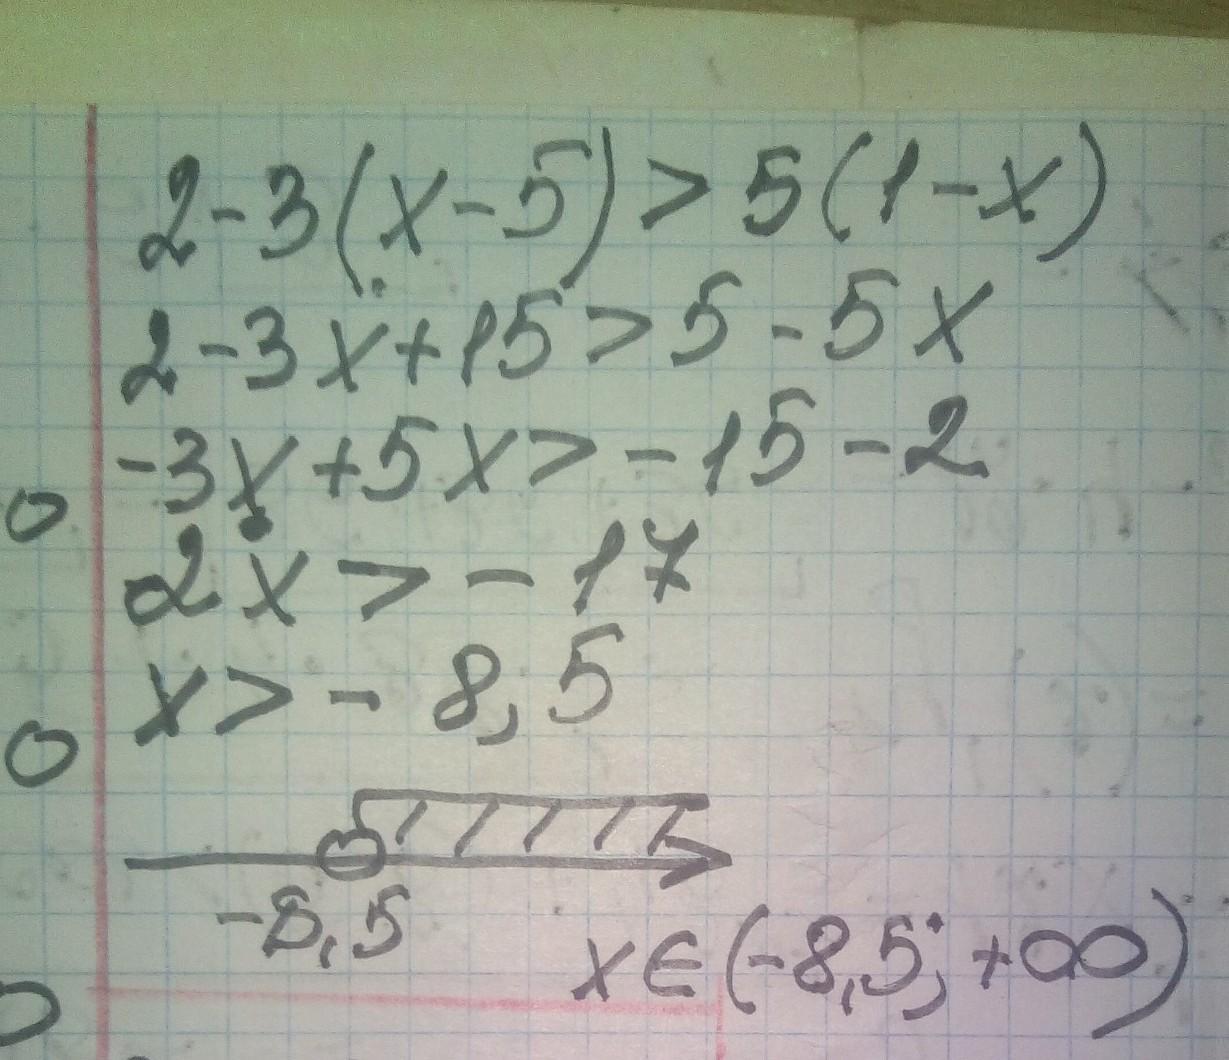 2-3(x-5)>5(1-x)
2-3x+15>5-5x
-3x+5x>-15-2
2x>-17
x>-8,5
-8,5
x∈(-8,5;+∞)